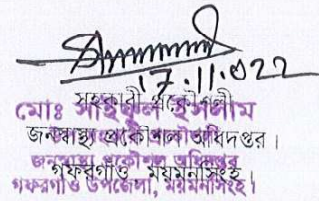 17.11.022
সহকারী প্রকৌশলী
মোঃ সাইফুল ইসলাম
জনস্বাস্থ্য প্রকৌশল অধিদপ্তর।
জনস্বাস্থ্য প্রকৌশল অধিদপ্তর
গফরগাঁও, ময়মনসিংহ।
গফরগাঁও উপজেলা, ময়মনসিংহ।